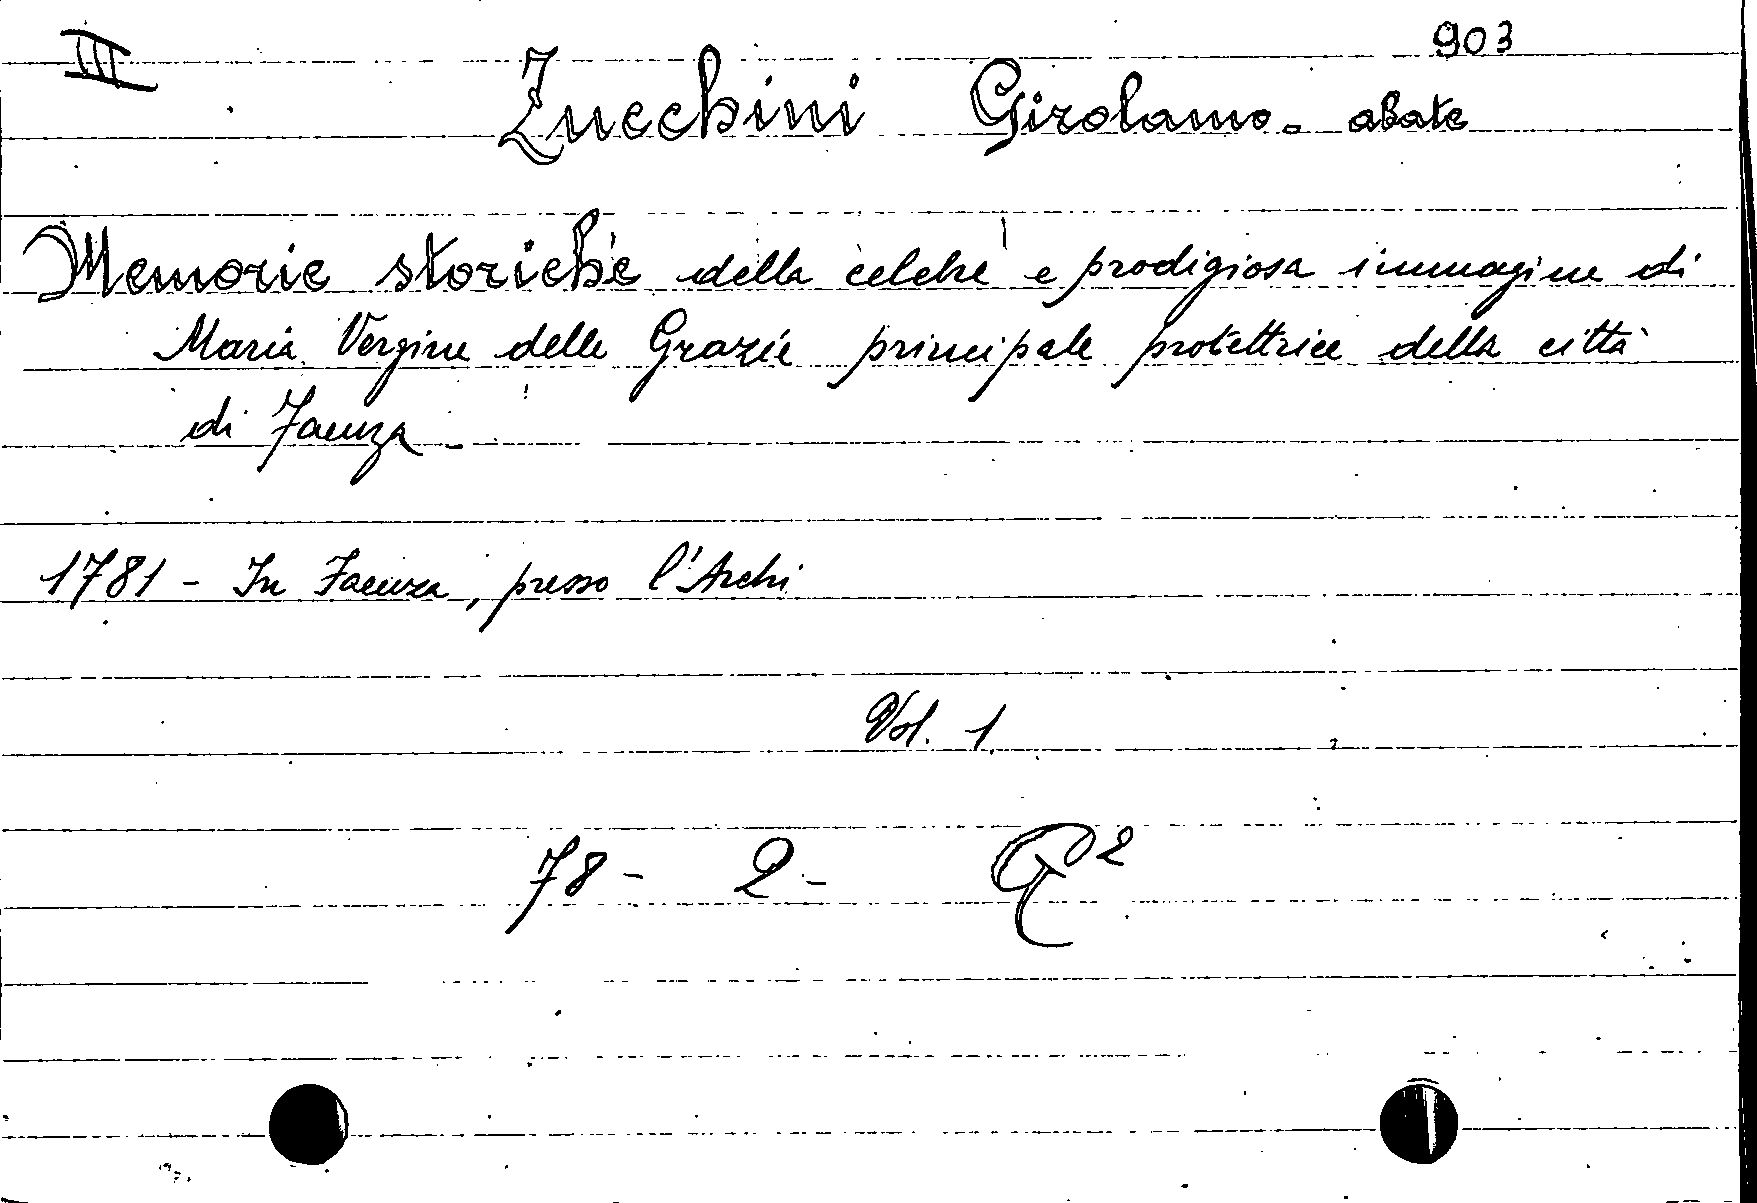 III
903
Zucchini Girolamo - abate
Memorie storiche della celebre e prodigiosa immagine di
Maria Vergine delle Grazie principale protettrice della città
di Faenza -
1781 - In Faenza, presso l'Archi
Vol. 1
78 - 2 - G²